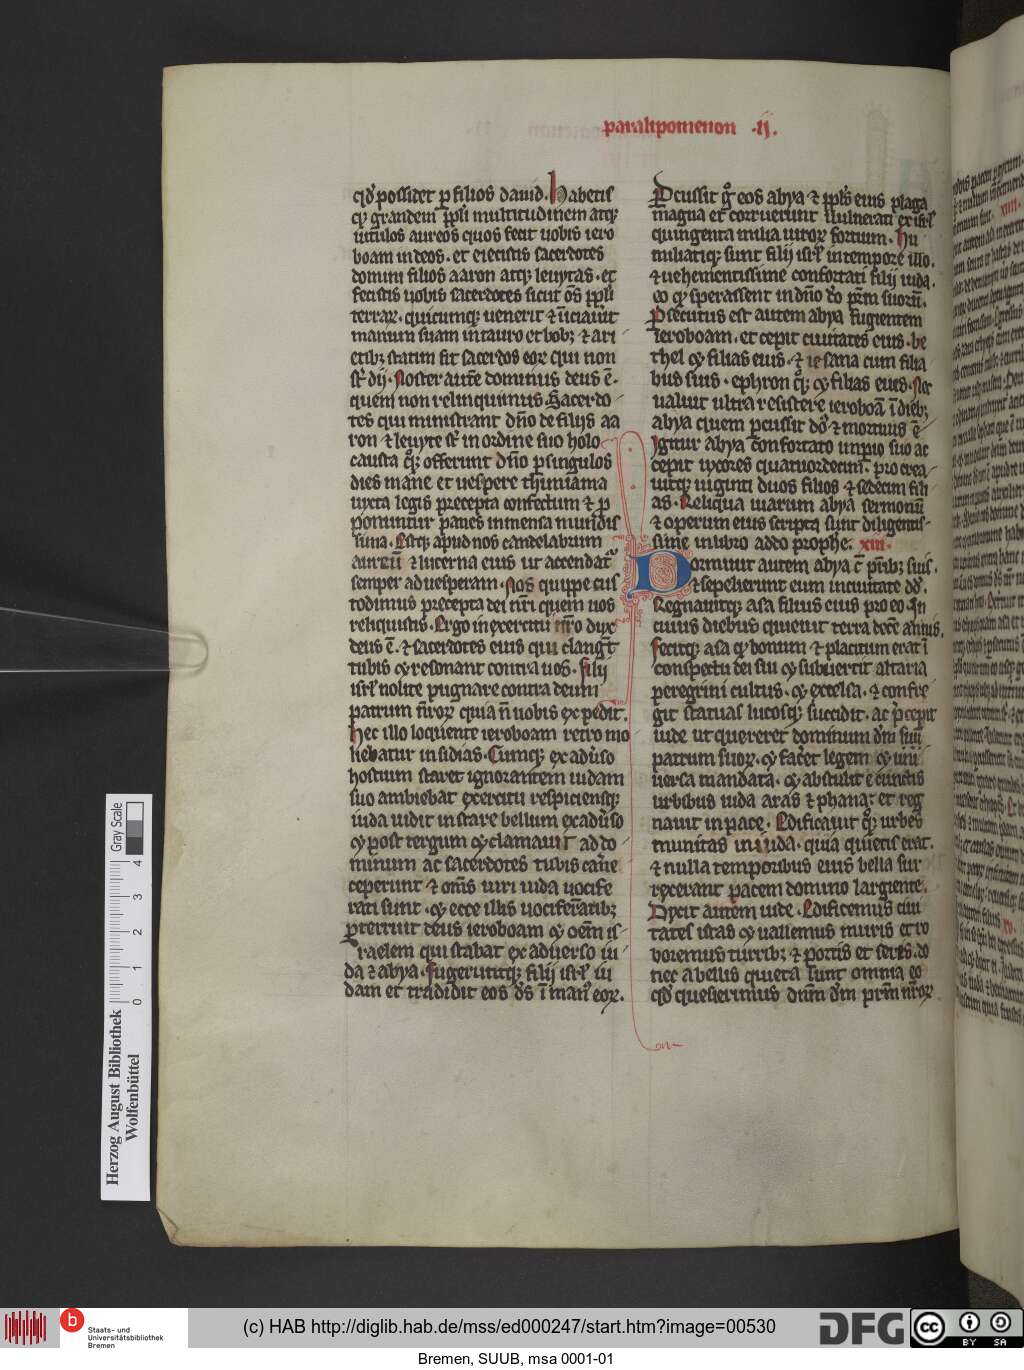 paralipomenon .ij.
qd possidet p filios dauid. Habetis
q grandem ppli multitudinem atq
uitulos aureos quos fecit uobis iero
boam in deos. et eiecistis sacerdotes
domini filios aaron atq leuytas. et
fecistis uobis sacerdotes sicut os ppli
terrar. quicumq uenerit
manum suam in tauro et bob; ⁊ ari
etib; statim fit sacerdos eor qui non
st dij. Noster aute dominus deus e.
quem non relinquimus Sacerdo
tes qui ministrant dno de filijs aa
ron ⁊ leuyte st in ordine suo holo
causta q offerunt dno p singulos
dies mane et uespere thimiama
iuxta legis precepta confectum ⁊ p
ponuntur panes in mensa mundis
sima. Estq apud nos candelabrum
aureu ⁊ lucerna eius ut accendat
semper ad uesperam. Nos quippe cus
todimus precepta dei nri quem uos
reliquistis. Ergo in exercitu nro dux
deus e. ⁊ sacerdotes eius qui clangut
tubis ⁊ resonant contra uos. filij
isrl nolite pugnare contra deum
patrum nror quia n uobis expedit.
Hec illo loquente ieroboam retro mo
liebatur insidias. Cumq ex aduso
hostium staret ignorantem iudam
suo ambiebat exercitu respiciensq
iuda uidit instare bellum ex aduso
⁊ post tergum ⁊ clamauit ad do
minum ac sacerdotes tubis cane
ceperunt ⁊ oms uiri iuda uocife
rati sunt. ⁊ ecce illis uociferatib;
pterruit deus ieroboam ⁊ oem is
raelem qui stabat ex aduerso iu
da ⁊ abya. fugeruntq filij isrl iu
dam et tradidit eos ds i manu eor.
Pcussit g eos abya ⁊ ppls eius plaga
magna et corruerunt uulnerati ex isrl
quingenta milia uiror fortium. Hu
miliatiq sunt filij isrl in tempore illo.
⁊ uehementissime confortati filij iuda.
eo q sperassent in dno do prm suoru.
Psecutus est autem abya fugientem
ieroboam. et cepit ciuitates eius. be
thel ⁊ filias eius. ⁊ iesana cum filia
bus suis. ephron q ⁊ filias eius. Nec
ualuit ultra resistere ieroboa i dieb;
abya quem pcussit ds ⁊ mortuus e
Igitur abya confortato impio suo ac
cepit uxores quatuordecim. procrea
uitq uiginti duos filios ⁊ sedecim fili
as. Reliqua uiarum abya sermonu
⁊ operum eius scripta sunt diligentis
sime in libro addo prophe. xiii.
Dormiuit autem abya c prib; suis.
⁊ sepelierunt eum in ciuitate dd.
Regnauitq asa filius eius pro eo. In
cuius diebus quieuit terra dece annis.
fecitq asa q bonum ⁊ placitum erat i
conspectu dei sui ⁊ subuertit altaria
peregrini cultus. ⁊ excelsa. ⁊ confre
git statuas lucosq succidit. ac pcepit
iude ut quereret dominum dm
patrum suor. ⁊ facet legem ⁊ uni
uersa mandata. ⁊ abstulit e cunctis
urbibus iuda aras ⁊ phana. et reg
nauit in pace. Edificauit q urbes
munitas in iuda. quia quietus erat.
⁊ nulla temporibus eius bella sur
rexerant pacem domino largiente.
Dixit autem iude. Edificemus ciui
tates istas ⁊ uallemus muris et ro
boremus turrib; ⁊ portis et seris. do
nec a bellis quieta sunt omnia eo
qd quesierimus dnm dm prm nror
Herzog August Bibliothek
Wolfenbüttel
0 1 2 3 4
Gray Scale
b
Staats- und
Universitätsbibliothek
Bremen
(c) HAB http://diglib.hab.de/mss/ed000247/start.htm?image=00530
DFG
cc
BY SA
Bremen, SUUB, msa 0001-01